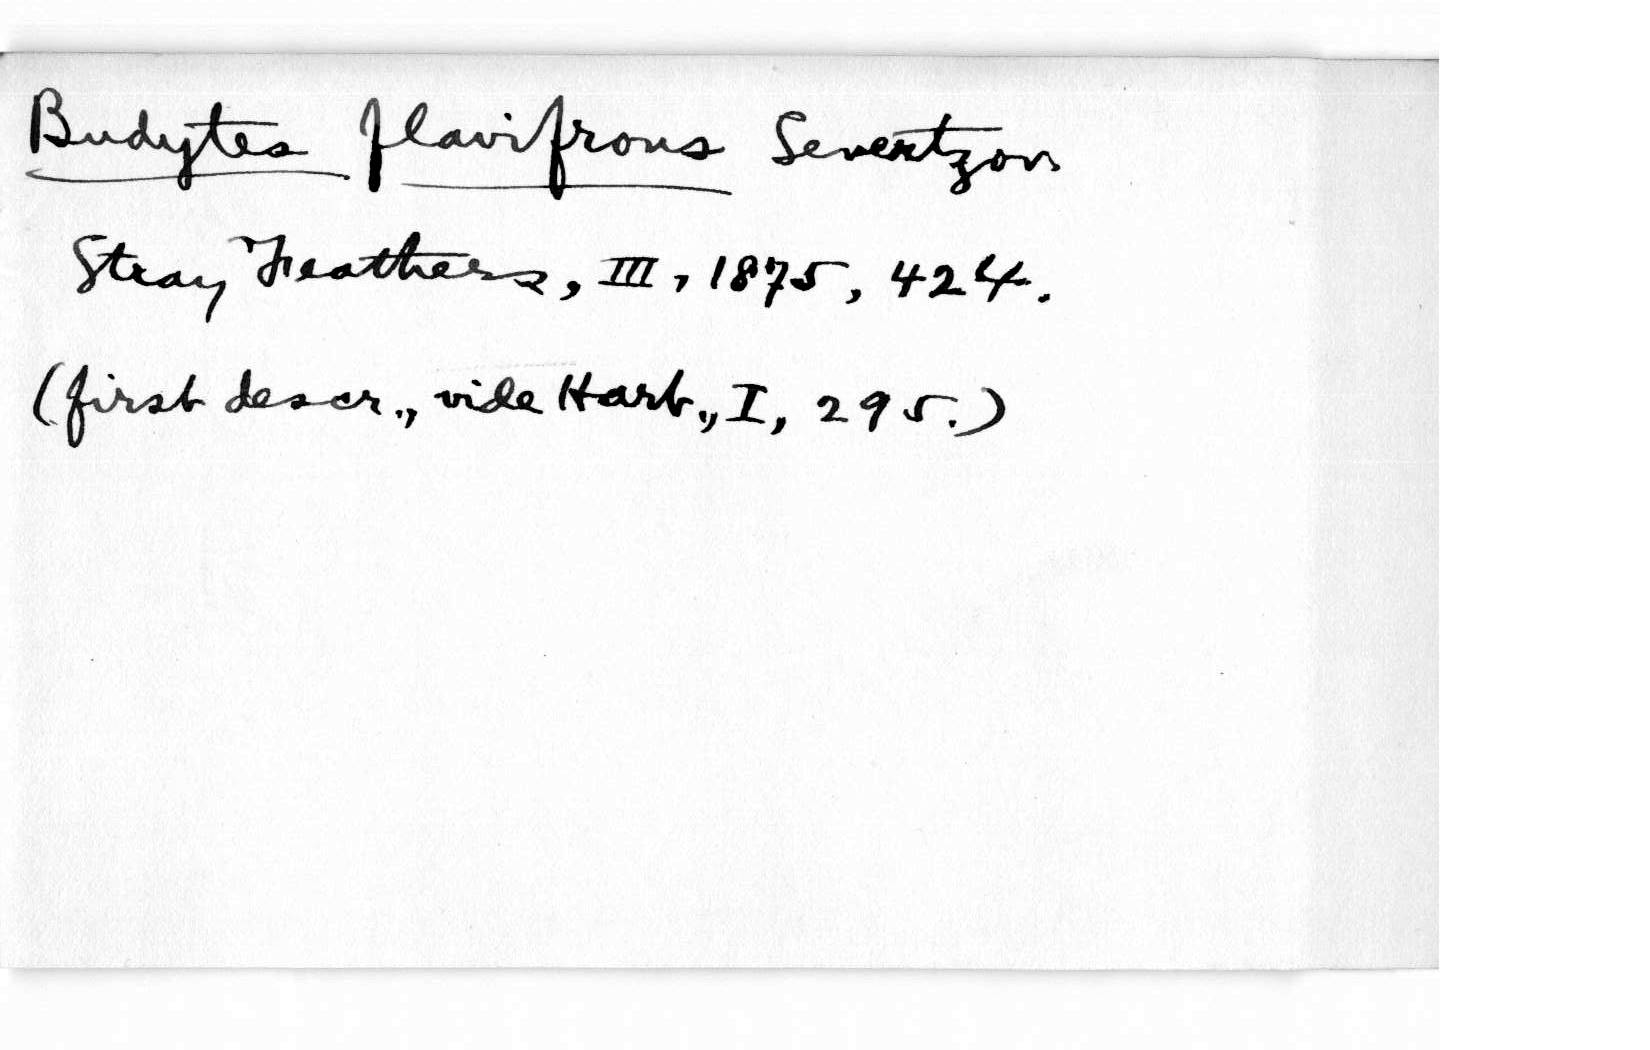 Budytes flavifrons Severtzov
Stray Feathers, III, 1875, 424.
(first descr., vide Hart., I, 295.)